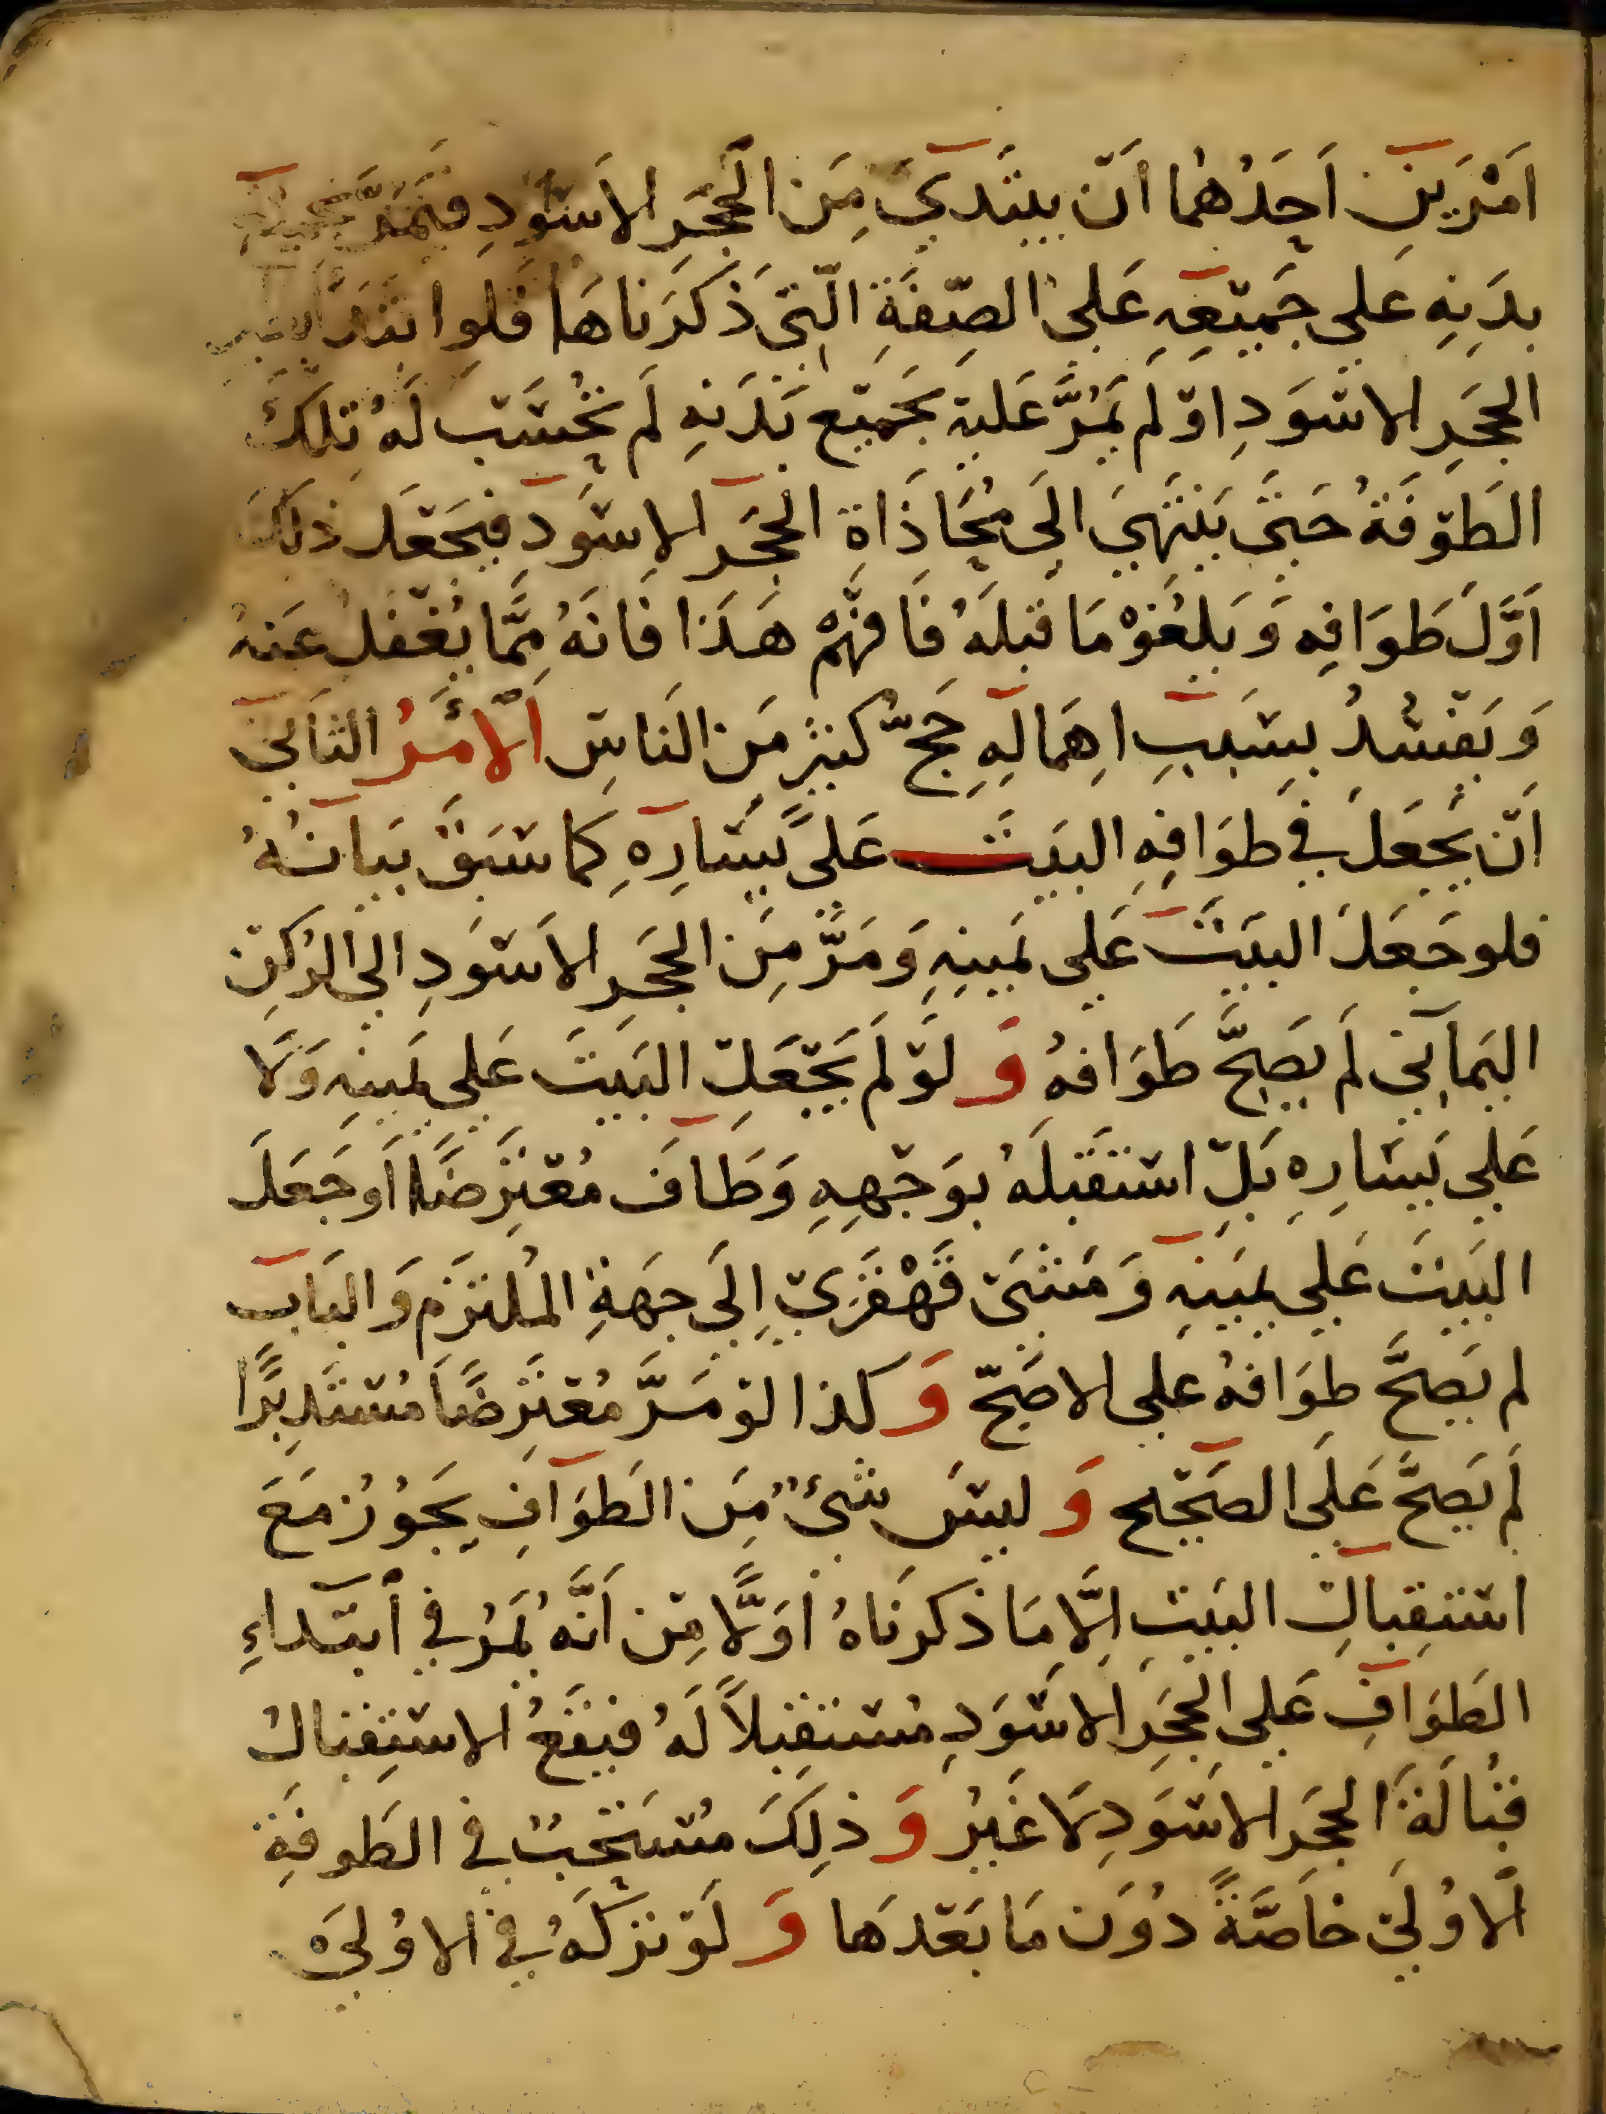 اَمْرَيْنِ اَحَدُهُمَا اَنْ يَبْتَدِيَ مِنَ الْحَجَرِ الاَسْوَدِ فَيَمُرَّ بِجَمِيْعِ
بَدَنِهِ عَلى جَمِيْعِهِ عَلىَ الصِّفَةِ الَّتِي ذَكَرْنَاهَا فَلَوِ ابْتَدَأَ بِغَيْرِ
الحَجَرِ الاسْوَدِ اوْ لَمْ يَمُرَّ عَلَيْهِ بِجَمِيْعِ بَدَنِهِ لَمْ يُحْسَبْ لَهُ تِلْكَ
الطَوْفَةُ حَتَّى يَنْتَهِيَ اِلَى مُحَاذَاةِ الْحَجَرِ الاسْوَدِ فَيَجْعَل ذَلِكَ
اَوَّلَ طَوَافِهِ وَيَلْغُوْ مَا قَبْلَهُ فَافْهَمْ هَذَا فَاِنَهُ مِمَّا يُغْفَلُ عَنهُ
وَيَفْسُدُ بِسَبَبِ اِهْمَالِهِ حَجُّ كَثِيْرٍ مِنَ النَاسِ اَلْأَمْرُ الثَانِي
اَنْ يَجْعَلَ فِي طَوَافِهِ البَيْتَ عَلَى يَسَارِهِ كَمَا سَبَقَ بَيَانُهُ
فلو جَعَلَ البَيْتَ عَلى يَمِينِهِ وَمَرَّ مِنَ الحَجَرِ الاَسْوَدِ الى الرُكْنِ
اليَمَانِي لَمْ يَصِحَّ طَوَافهُ وَلَوْ لَمْ يَجْعَلِ البَيْتَ عَلى يَمِينِهِ وَلَا
عَلى يَسَارِهِ بَلِ اسْتَقْبَلَهُ بوَجْهِهِ وَطَافَ مُعْتَرِضًا اَوْ جَعَلَ
البَيْتَ عَلى يَمِيْنِهِ وَمَشَى قَهْقَرَي اِلَى جِهَةِ المُلْتَزَمِ وَالبَابِ
لم يَصِحَّ طَوَافهُ على الاصَحّ وَكذا لوْ مَرَّ مُعْتَرِضًا مُسْتَدْبِرًا
لَمْ يَصِحَّ عَلَى الصَحِيْحِ وَلَيْسَ شَيْءٌ مِنَ الطَوَافِ يَجُوْزُ مَعَ
اسْتِقبَالِ البَيْتِ اِلَّا مَا ذكرنَاهُ اَوَّلًا مِنْ اَنَّهُ يَمُرُ فِي ابْتِدَاءِ
الطَوَافِ عَلى الحَجَرِ الاَسْوَدِ مُسْتَقْبِلاً لَهُ فَيَقَعُ الاسْتِقْبَالُ
قُبَالَةَ الحَجَرِ الاسْوَدِ لَا غَيْرُ وَذلِكَ مُسْتَحَبٌ فِي الطَوفَةِ
الْاوُلَي خَاصَّةً دُوْنَ مَا بَعْدَهَا وَلَوْ تَرَكَهُ فِي الاوُلَيَ